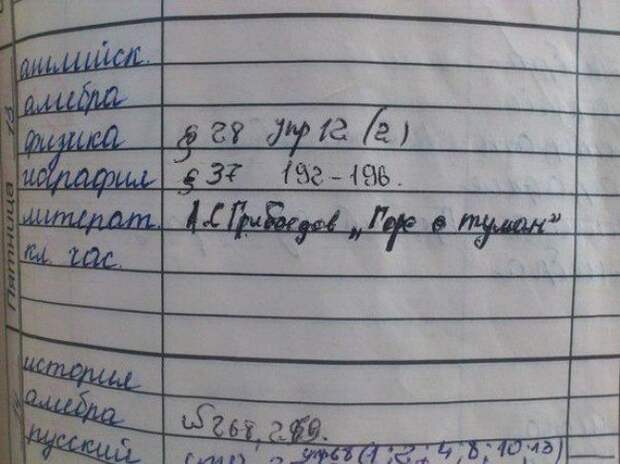 английск.
алгебра
физика § 28 упр 12 (2)
география § 37 192-196.
литерат. А.С Грибоедов „Горе о туман"
кл. час.
Пятница
история
алгебра №268, 269.
русский упр68 (1; 2; 4; 8; 10; 13)